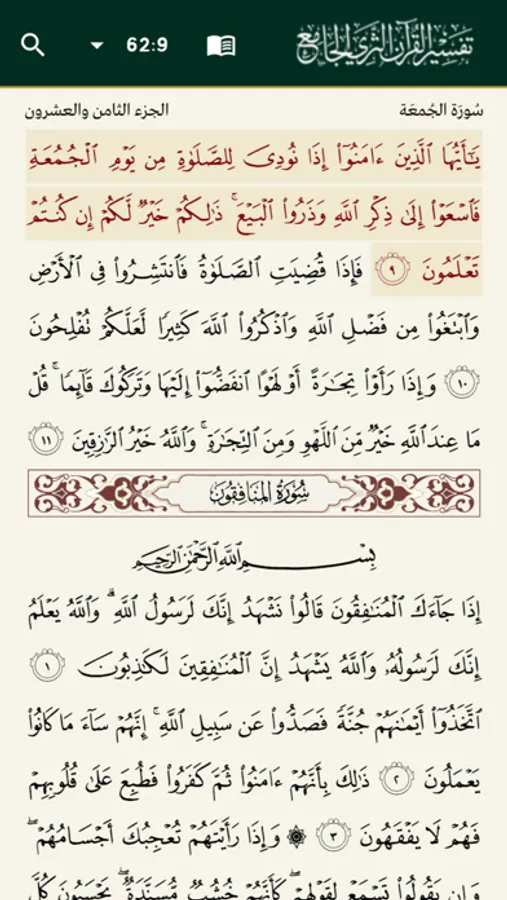 62:9
تفسير القرآن الثري الجامع
سُورَة الجُمعَة
الجزء الثامن والعشرون
يَـٰٓأَيُّهَا ٱلَّذِينَ ءَامَنُوٓا۟ إِذَا نُودِىَ لِلصَّلَوٰةِ مِن يَوْمِ ٱلْجُمُعَةِ
فَٱسْعَوْا۟ إِلَىٰ ذِكْرِ ٱللَّهِ وَذَرُوا۟ ٱلْبَيْعَ ۚ ذَٰلِكُمْ خَيْرٌ لَّكُمْ إِن كُنتُمْ
تَعْلَمُونَ ٩ فَإِذَا قُضِيَتِ ٱلصَّلَوٰةُ فَٱنتَشِرُوا۟ فِى ٱلْأَرْضِ
وَٱبْتَغُوا۟ مِن فَضْلِ ٱللَّهِ وَٱذْكُرُوا۟ ٱللَّهَ كَثِيرًا لَّعَلَّكُمْ تُفْلِحُونَ
١٠ وَإِذَا رَأَوْا۟ تِجَـٰرَةً أَوْ لَهْوًا ٱنفَضُّوٓا۟ إِلَيْهَا وَتَرَكُوكَ قَآئِمًا ۚ قُلْ
مَا عِندَ ٱللَّهِ خَيْرٌ مِّنَ ٱللَّهْوِ وَمِنَ ٱلتِّجَـٰرَةِ ۚ وَٱللَّهُ خَيْرُ ٱلرَّٰزِقِينَ ١١
سُورَةُ المُنَافِقُونَ
بِسْمِ ٱللَّهِ ٱلرَّحْمَـٰنِ ٱلرَّحِيمِ
إِذَا جَآءَكَ ٱلْمُنَـٰفِقُونَ قَالُوا۟ نَشْهَدُ إِنَّكَ لَرَسُولُ ٱللَّهِ ۗ وَٱللَّهُ يَعْلَمُ
إِنَّكَ لَرَسُولُهُۥ وَٱللَّهُ يَشْهَدُ إِنَّ ٱلْمُنَـٰفِقِينَ لَكَـٰذِبُونَ ١
ٱتَّخَذُوٓا۟ أَيْمَـٰنَهُمْ جُنَّةً فَصَدُّوا۟ عَن سَبِيلِ ٱللَّهِ ۚ إِنَّهُمْ سَآءَ مَا كَانُوا۟
يَعْمَلُونَ ٢ ذَٰلِكَ بِأَنَّهُمْ ءَامَنُوا۟ ثُمَّ كَفَرُوا۟ فَطُبِعَ عَلَىٰ قُلُوبِهِمْ
فَهُمْ لَا يَفْقَهُونَ ٣ ۞ وَإِذَا رَأَيْتَهُمْ تُعْجِبُكَ أَجْسَامُهُمْ ۖ
وَإِن يَقُولُوا۟ تَسْمَعْ لِقَوْلِهِمْ ۖ كَأَنَّهُمْ خُشُبٌ مُّسَنَّدَةٌ ۖ يَحْسَبُونَ كُلَّ